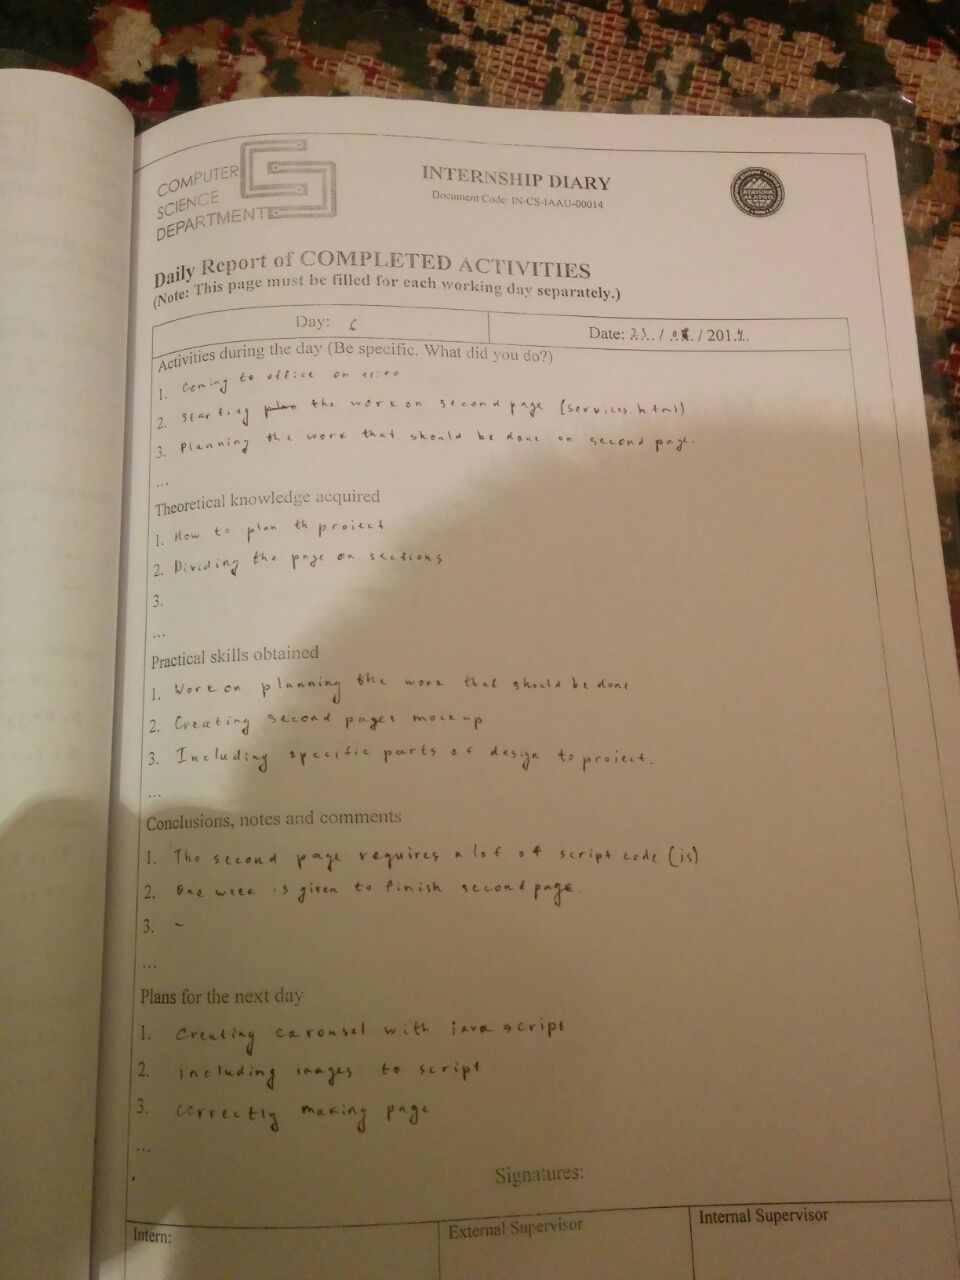 COMPUTER
SCIENCE
DEPARTMENT
INTERNSHIP DIARY
Document Code: IN-CS-IAAU-00014
Daily Report of COMPLETED ACTIVITIES
(Note: This page must be filled for each working day separately.)
Day: 6
Date: 23../ / 201
Activities during the day (Be specific. What did you do?)
1. Coming to office on 11:00
2. Starting plan the work on second page (services.html)
3. Planning the work that should be done on second page.
...
Theoretical knowledge acquired
1. How to plan th project
2. Dividing the page on sections
3.
...
Practical skills obtained
1. Work on planning the work that should be done
2. Creating second pages mockup
3. Including specific parts of design to project.
...
Conclusions, notes and comments
1. The second page requires a lot of script code (js)
2. One week is given to finish second page.
3. -
...
Plans for the next day
1. Creating carousel with javascript
2. including images to script
3. correctly making page
...
Signatures:
Intern:
External Supervisor
Internal Supervisor